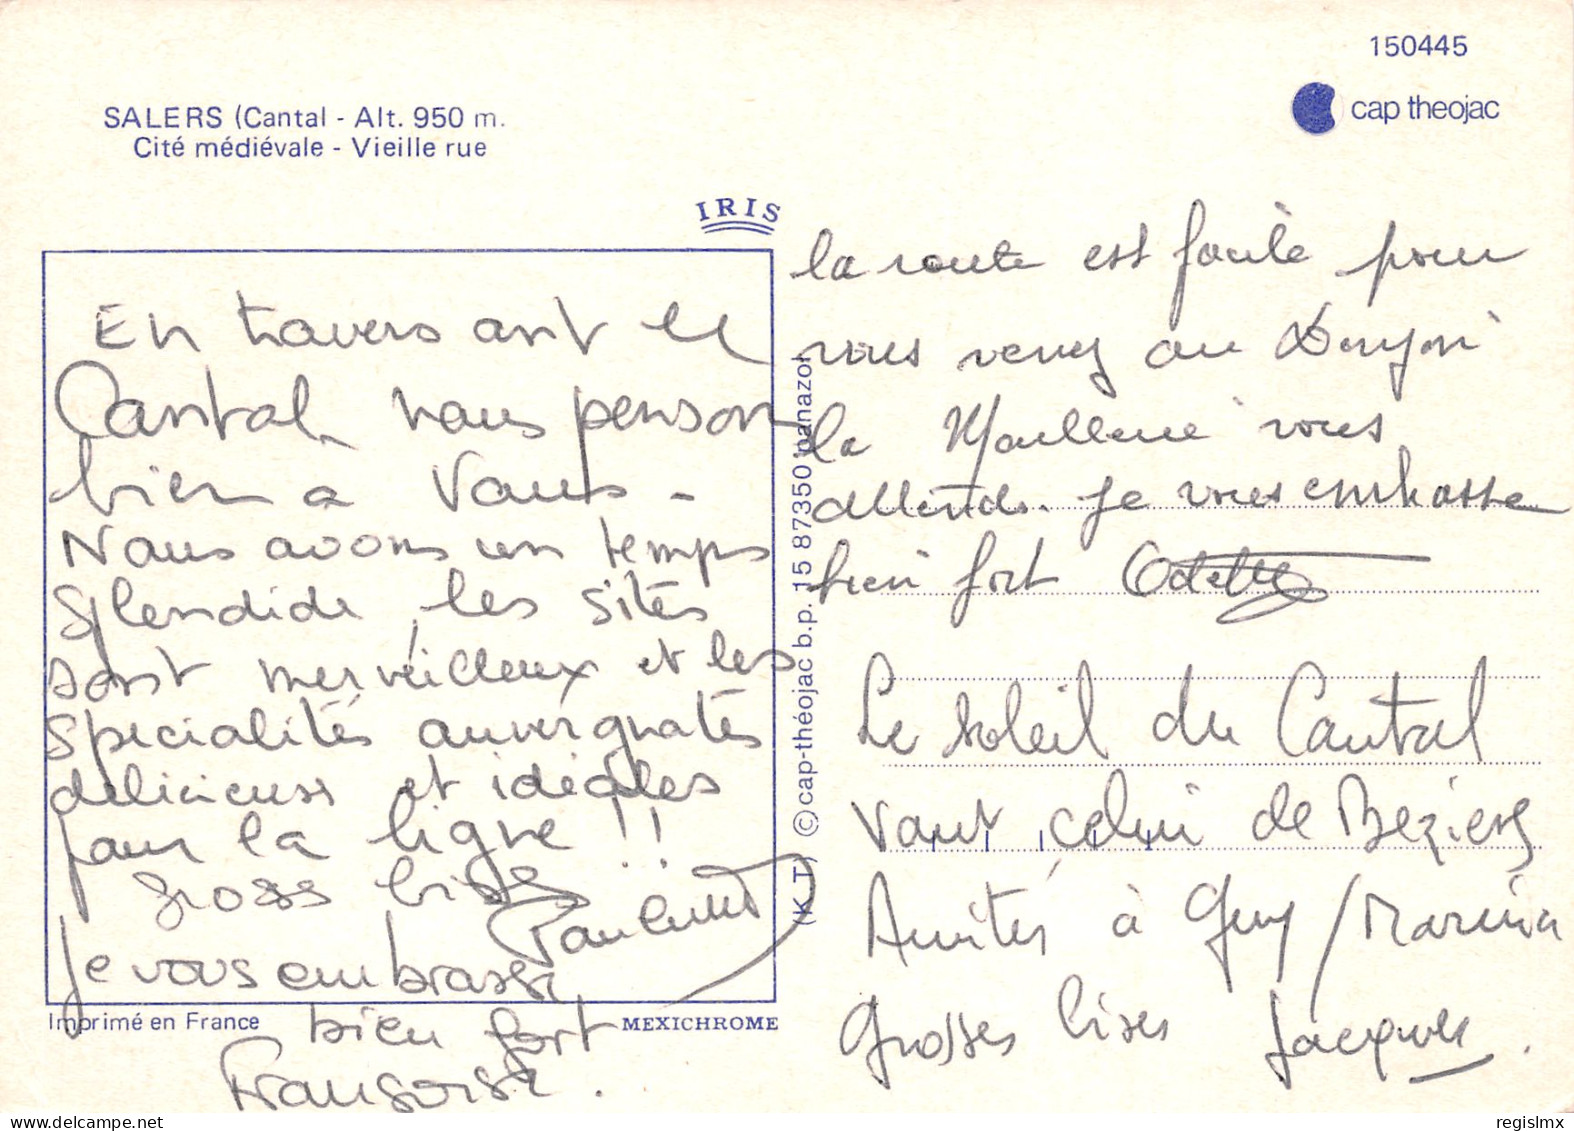 150445
cap theojac
SALERS (Cantal - Alt. 950 m.
Cité médiévale - Vieille rue
IRIS
En traversant le
Cantal nous penson
bien a Vous -
Nous avons un temps
splendide, les sites
sont merveilleux et les
specialités auvergnates
delicieuses et idéales
pour la ligne !!
gross bises
Paulette
Je vous embrasse
bien fort
Françoise.
Imprimé en France
MEXICHROME
(K.T) © cap-théojac b.p. 15 87350 panazol
la route est facile pour
vous venez au Donjon
la vous
attends. Je vous embrasse
bien fort Odette
Le soleil du Cantal
vaut celui de Beziers
Amitiés à Guy / Marina
Grosses bises Jacques.
regislmx